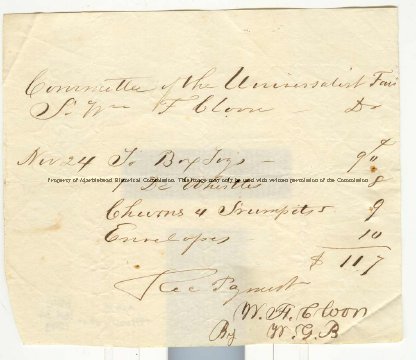 Committee of the Universalist Fair
To Wm F Cloon Dr
Nov 24 To Box Toys — 90
Property of Marblehead Historical Commission. This image may only be used with written permission of the Commission.
" Do Whistles 8
& Trumpets 9
Envelopes 10
$ 117
Rec Payment
W. F. Cloon
By W. G. B